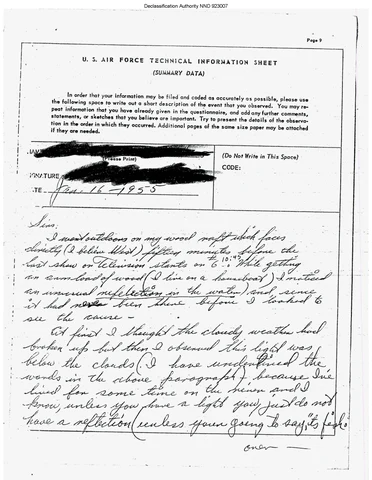 Declassification Authority NND 923007
Page 9
U. S. AIR FORCE TECHNICAL INFORMATION SHEET
(SUMMARY DATA)
In order that your information may be filed and coded as accurately as possible, please use
the following space to write out a short description of the event that you observed. You may re-
peat information that you have already given in the questionnaire, and add any further comments,
statements, or sketches that you believe are important. Try to present the details of the observa-
tion in the order in which they occurred. Additional pages of the same size paper may be attached
if they are needed.
NAME
(Please Print)
(Do Not Write in This Space)
CODE:
SIGNATURE
TE Jan. 16 - 1955
Sirs,
I went outdoors on my wood raft which faces
directly (I believe West) fifteen minutes before the
last show on Television starts on # 6. 10:45 While getting
an arm load of wood (I live on a houseboat) I noticed
an unusual reflection in the water, and since
it had been there before I looked to
see the cause -
At first I thought the cloudy weather had
broken up but then I observed this light was
below the clouds (I have underlined the
words in the above paragraph) because I've
lived for some time on the river and I
know, unless you have a light you just do not
have a reflection (unless your going to say, its fish.
over -